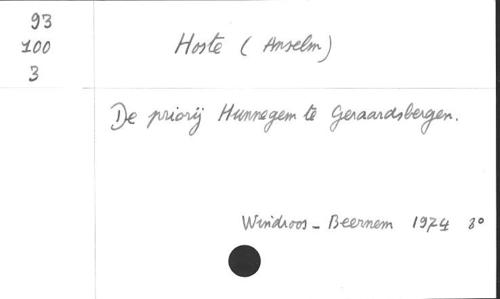 93
100
3
Hoste (Anselm)
De priorij Hunnegem te Geraardsbergen.
Windroos - Beernem 1974 8°